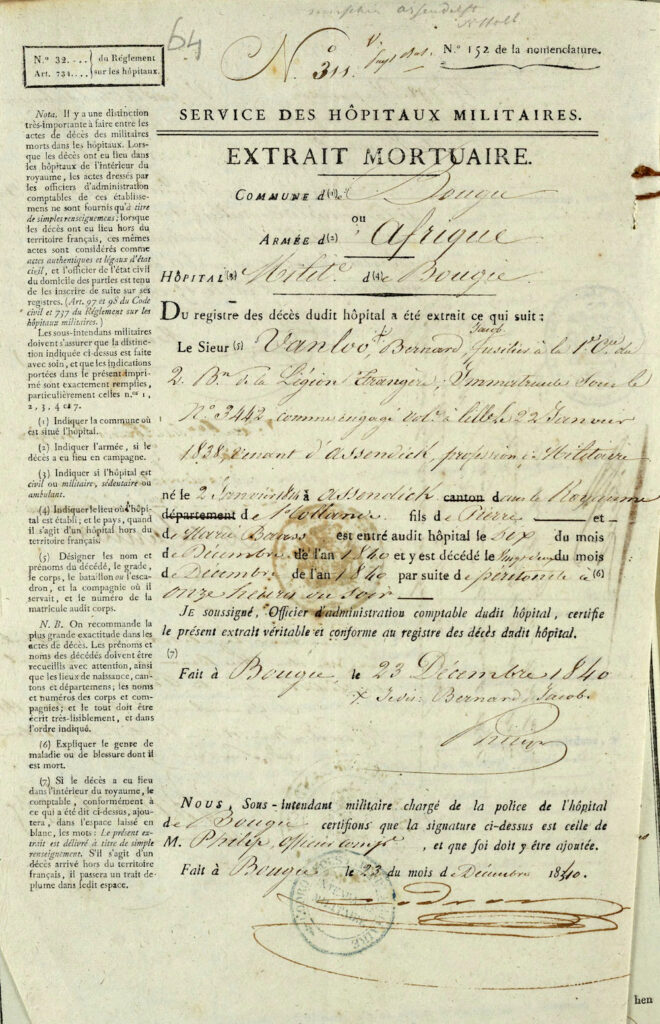 64
N.º 32.... du Réglement
Art. 734.... sur les hôpitaux.
N.º 311
N.º 152 de la nomenclature.
SERVICE DES HÔPITAUX MILITAIRES.
EXTRAIT MORTUAIRE.
COMMUNE d(1)e Bougie
ou
ARMÉE d(2) Afrique
HÔPITAL (3) Milit.e d(4)e Bougie.
Du registre des décès dudit hôpital a été extrait ce qui suit :
Jacob
Le Sieur (5) Vanloo, Bernard, fusilier à la 1re Cie du
2. Bn de la Légion Etrangère; Immatricule sous le
N.º 3442, comme engagé vol. à Lille le 22 Janvier
1838, venant d'assendick, profession : Militaire
né le 2 Janvier à assendick canton dans le Royaume
département de hollande fils de Pierre et
de Marie est entré audit hôpital le six du mois
de Décembre de l'an 1840 et y est décédé le vingt deux du mois
de Décembre de l'an 1840 par suite de péritonite à (6)
onze heures du soir
JE soussigné, Officier d'administration comptable dudit hôpital, certifie
le présent extrait véritable et conforme au registre des décès dudit hôpital.
(7)
Fait à Bougie, le 23 Décembre 1840
Bernard, Jacob.
NOUS, Sous-intendant militaire chargé de la police de l'hôpital
de Bougie certifions que la signature ci-dessus est celle de
M. Philip, officier compt. , et que foi doit y être ajoutée.
Fait à Bougie le 23 du mois de Décembre 1840.
Nota. Il y a une distinction
très-importante à faire entre les
actes de décès des militaires
morts dans les hôpitaux. Lors-
que les décès ont eu lieu dans
les hôpitaux de l'intérieur du
royaume, les actes dressés par
les officiers d'administration
comptables de ces établisse-
mens ne sont fournis qu'à titre
de simples renseignemens ; lorsque
les décès ont eu lieu hors du
territoire français, ces mêmes
actes sont considérés comme
actes authentiques et légaux d'état
civil, et l'officier de l'état civil
du domicile des parties est tenu
de les inscrire de suite sur ses
registres. (Art. 97 et 98 du Code
civil et 737 du Réglement sur les
hôpitaux militaires.)
Les sous-intendans militaires
doivent s'assurer que la distinc-
tion indiquée ci-dessus est faite
avec soin, et que les indications
portées dans le présent impri-
mé sont exactement remplies,
particulièrement celles n.os 1,
2, 3, 4 et 7.
(1) Indiquer la commune où
est situé l'hôpital.
(2) Indiquer l'armée, si le
décès a eu lieu en campagne.
(3) Indiquer si l'hôpital est
civil ou militaire, sédentaire ou
ambulant.
(4) Indiquer le lieu où l'hôpi-
tal est établi ; et le pays, quand
il s'agit d'un hôpital hors du
territoire français.
(5) Désigner les nom et
prénoms du décédé, le grade,
le corps, le bataillon ou l'esca-
dron, et la compagnie où il
servait, et le numéro de la
matricule audit corps.
N. B. On recommande la
plus grande exactitude dans les
actes de décès. Les prénoms et
noms des décédés doivent être
recueillis avec attention, ainsi
que les lieux de naissance, can-
tons et départemens ; les noms
et numéros des corps et com-
pagnies ; et le tout doit être
écrit très-lisiblement, et dans
l'ordre indiqué.
(6) Expliquer le genre de
maladie ou de blessure dont il
est mort.
(7) Si le décès a eu lieu
dans l'intérieur du royaume, le
comptable, conformément à
ce qui a été dit ci-dessus, ajou-
tera, dans l'espace laissé en
blanc, les mots : Le présent ex-
trait est délivré à titre de simple
renseignement. S'il s'agit d'un
décès arrivé hors du territoire
français, il passera un trait de
plume dans ledit espace.
hen